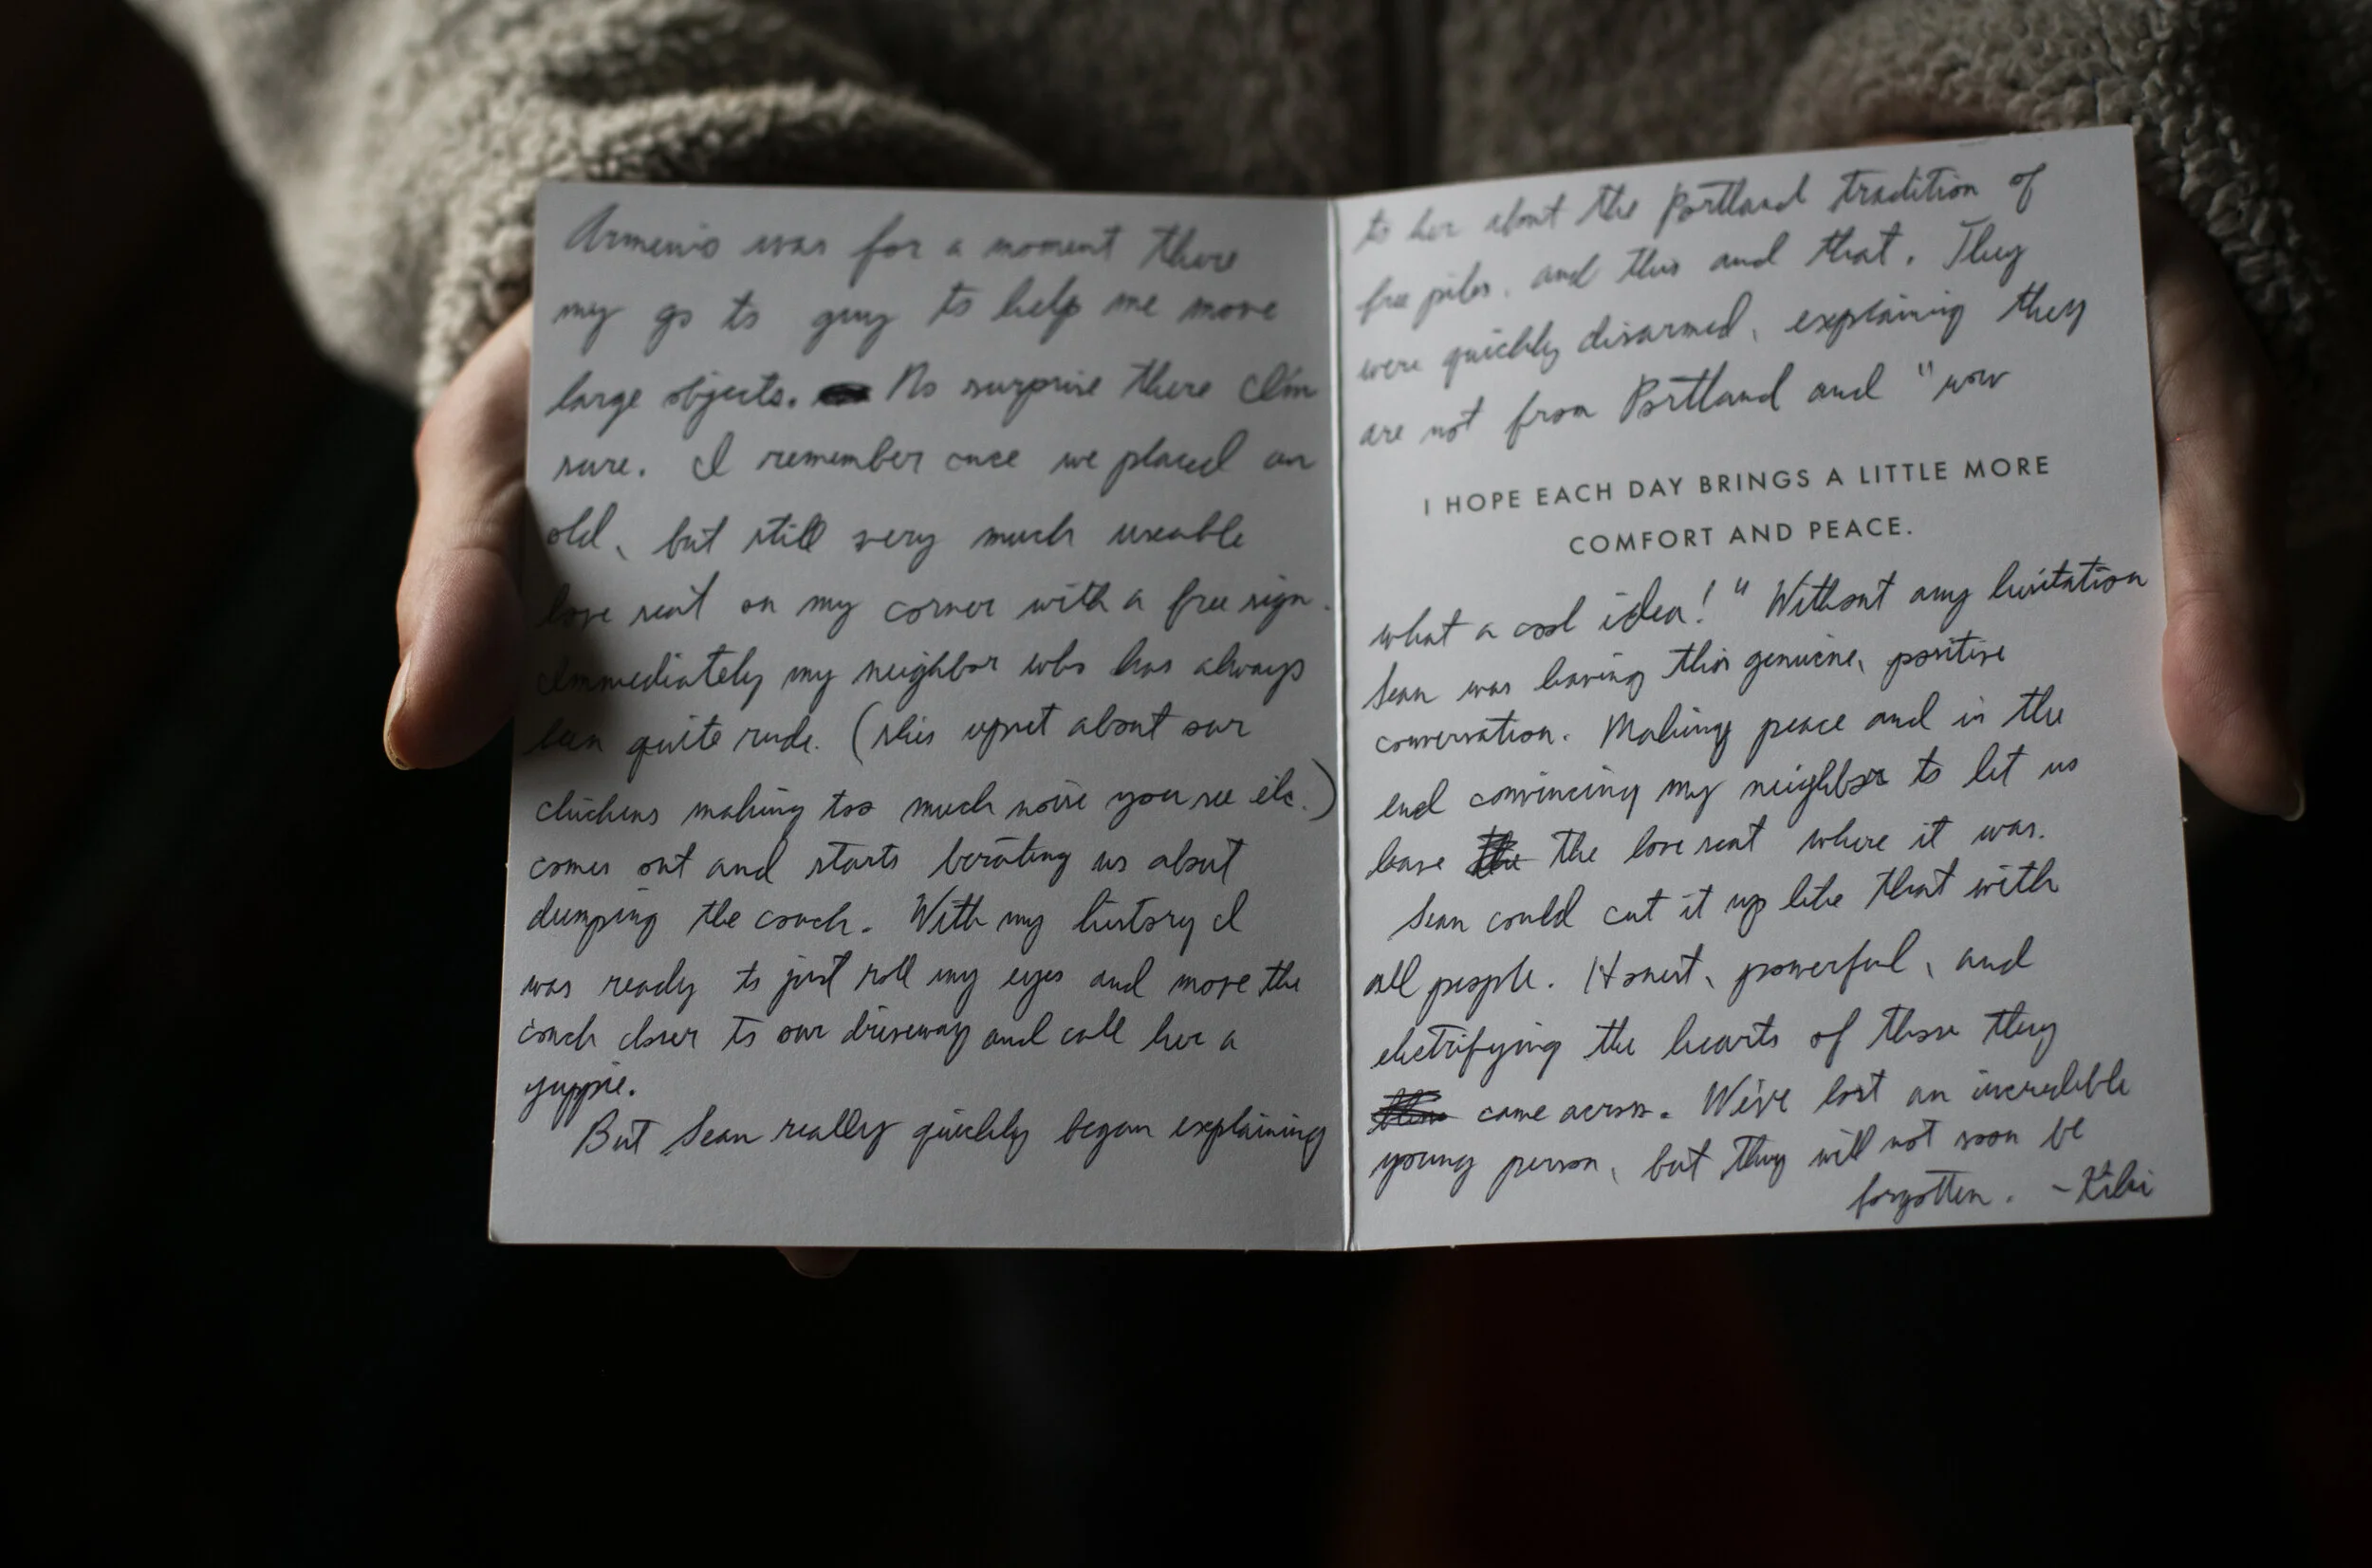 Armenio was for a moment there
my go to guy to help me move
large objects. No surprise there I'm
sure. I remember once we placed an
old, but still very much useable
love seat on my corner with a free sign.
Immediately my neighbor who has always
been quite rude. (shes upset about our
chickens making too much noise you see etc.)
comes out and starts berating us about
dumping the couch. With my history I
was ready to just roll my eyes and move the
couch closer to our driveway and call her a
yuppie.
But Sean really quickly began explaining
to her about the Portland tradition of
free piles, and this and that. They
were quickly disarmed, explaining they
are not from Portland and "wow
I HOPE EACH DAY BRINGS A LITTLE MORE
COMFORT AND PEACE.
what a cool idea!" Without any hesitation
Sean was having this genuine, positive
conversation. Making peace and in the
end convincing my neighbor to let us
leave the the love seat where it was.
Sean could cut it up like that with
all people. Honest, powerful, and
electrifying the hearts of those they
came across. We've lost an incredible
young person, but they will not soon be
forgotten. -